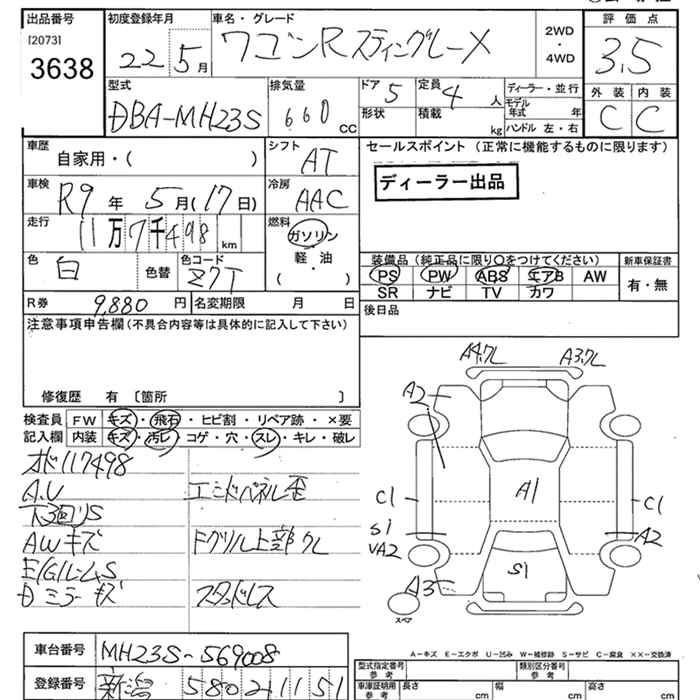 出品番号 初度登録年月 車名・グレード 評価点
[2073] 3638 22 5月 ワゴンR スティングレーX 2WD・4WD 3.5
型式 排気量 ドア 5 定員 4人 ディーラー・並行 外装 内装
DBA-MH23S 660cc 形状 積載 kg モデル年式 年 ハンドル 左・右 C C
車歴 シフト セールスポイント (正常に機能するものに限ります)
自家用・( ) AT
車検 冷房 ディーラー出品
R9年 5月(17日) AAC
走行 燃料
11万7千498km ガソリン
色 色コード 軽・油 装備品(純正品に限り○をつけてください) 新車保証書
白 色替 Z7T ( ) PS PW ABS エアB AW 有・無
R券 9,880円 名変期限 月 日 SR ナビ TV カワ
注意事項申告欄(不具合内容等は具体的に記入して下さい) 後日品
修復歴 有 〔箇所 〕
検査員 FW キズ・飛石・ヒビ割・リペア跡・×要
記入欄 内装 キズ・汚レ・コゲ・穴・スレ・キレ・破レ
オド117498
A.U エンドパネル歪
下廻りS
AWキズ Fグリル上部ワレ
E/GルームS
Dミラーキズ スタッドレス
A4.ワレ A3.ワレ
A2
A1
C1 C1
S1 A2
VA2
S1
A3
スペア
A-キズ E-エクボ U-凹み W-補修跡 S-サビ C-腐食 ××-交換済
車台番号 MH23S-569008 型式指定番号 参考 類別区分番号 参考
登録番号 新潟 580 2 1151 車庫証明用 参考 長さ cm 幅 cm 高さ cm